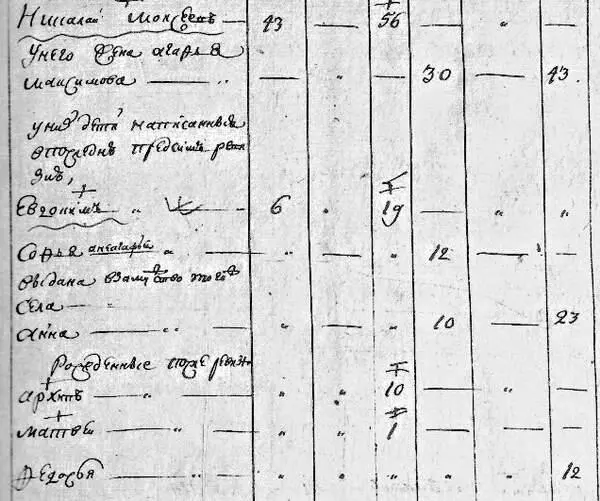 Николай Моисеевъ — 43 — 56 — „ —
У него жена агафья
Максимова — „ — „ — 30 — 43
у них дети написанныя
в последнъ пред симъ реви
зиѣ,
Евдокимъ „ 6 „ 19 — „ „
Софья „ — „ — „ 12 — „ —
выдана взамужство того
села — „
анна — „ — „ 10 — 23
Рожденные после ревиз
архипъ — „ — „ „ 10 — „ —
матвеи — „ — „ „ 1 — „ —
Федосья — „ — „ „ „ — „ 12